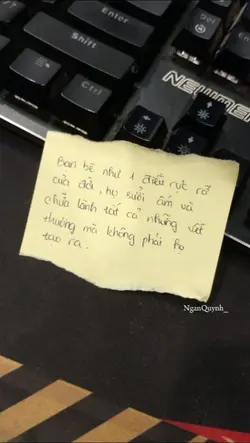 Enter
Shift
Ctrl
Del
NEWMEN
Bạn bè như 1 điều rực rỡ
của đời, họ sưởi ấm và
chữa lành tất cả những vết
thương mà không phải họ
tạo ra.
NganQuynh_